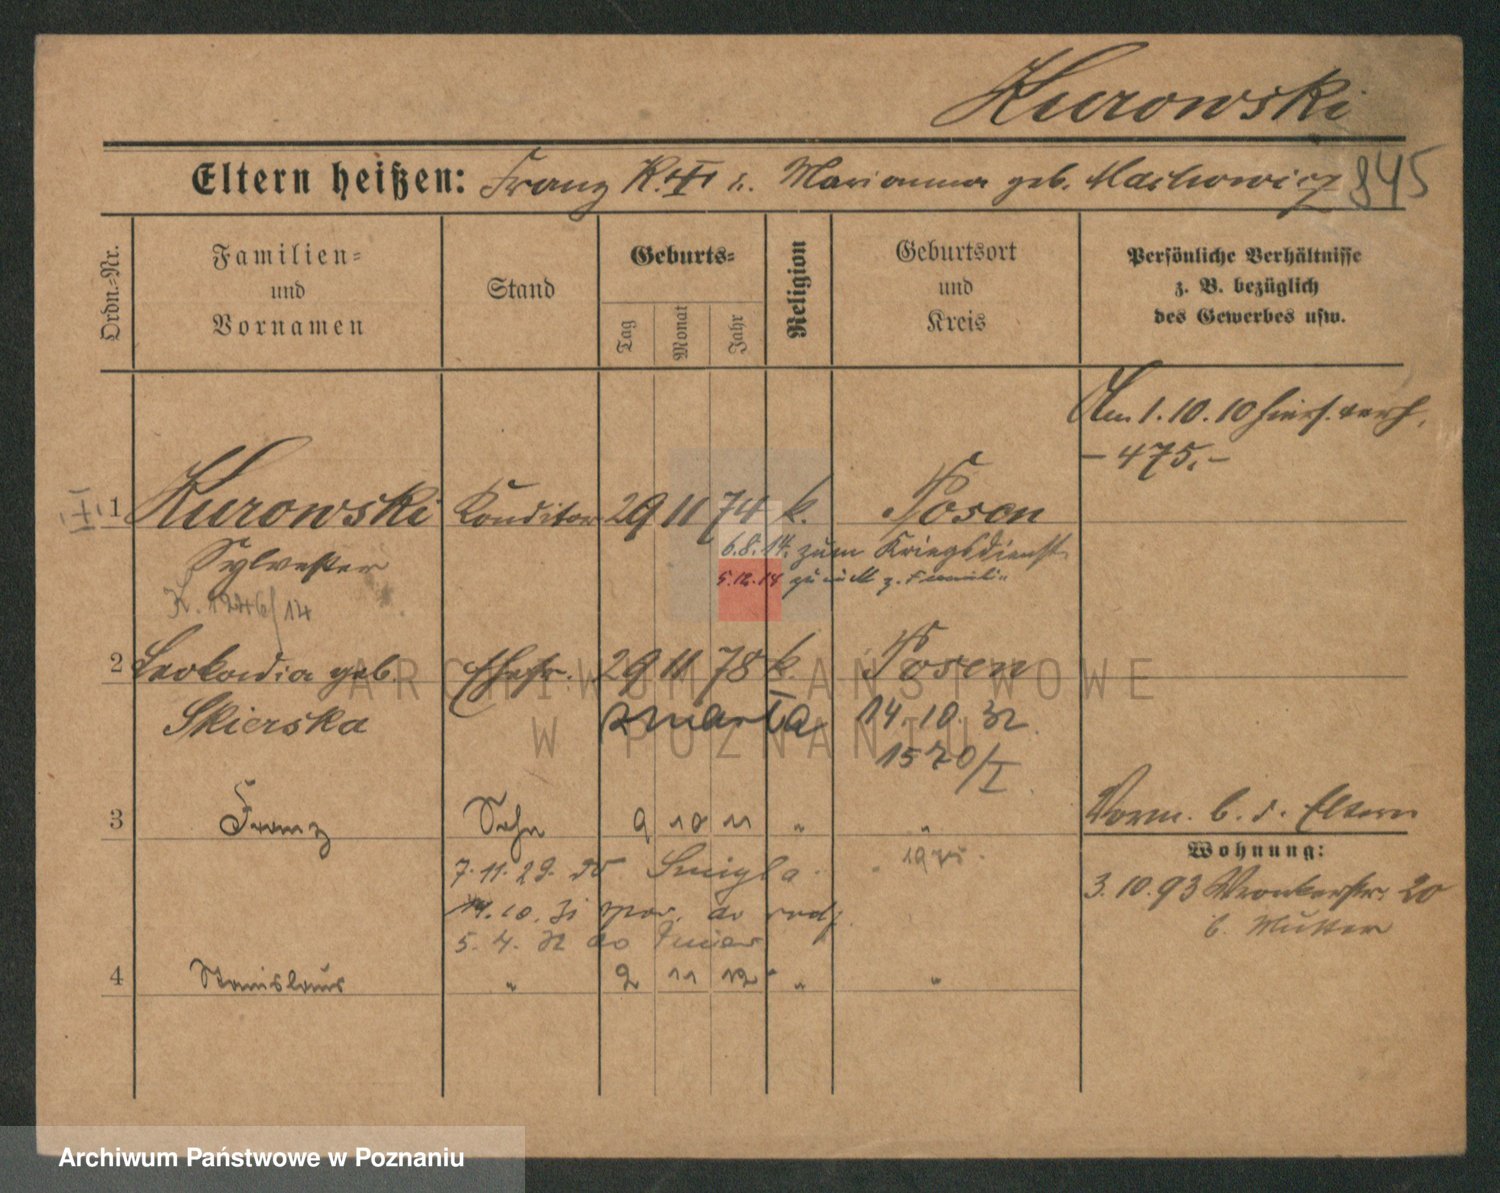 Kurowski
Eltern heißen: Franz K. u. Marianna geb. Machowicz 845
Ordn.-Nr.
Familien-
und
Vornamen
Stand
Geburts-
Tag
Monat
Jahr
Religion
Geburtsort
und
Kreis
Persönliche Verhältnisse
z. B. bezüglich
des Gewerbes usw.
Am 1.10.10 hiers. verh.
- 475.-
1 Kurowski Konditor 29 11 74 k. Posen
Sylvester 6.8.14. zum Kriegsdienst
5.12.14 zurück z. Familie
K. 1246/14
2 Leokadia geb. Ehefr. 29 11 78 k. Posen
Skierska zmarła 14.10.32
1570/I
3 Franz Sohn 9 10 11 " "
Vorm. b. d. Eltern
Wohnung:
7.11.29. do Śmigla
3.10.93 Wronkerstr. 20
b. Mutter
14.10.31 do
5.4.32 do
4 Stanislaus " 2 11 12 " "
ARCHIWUM PAŃSTWOWE
W POZNANIU
Archiwum Państwowe w Poznaniu